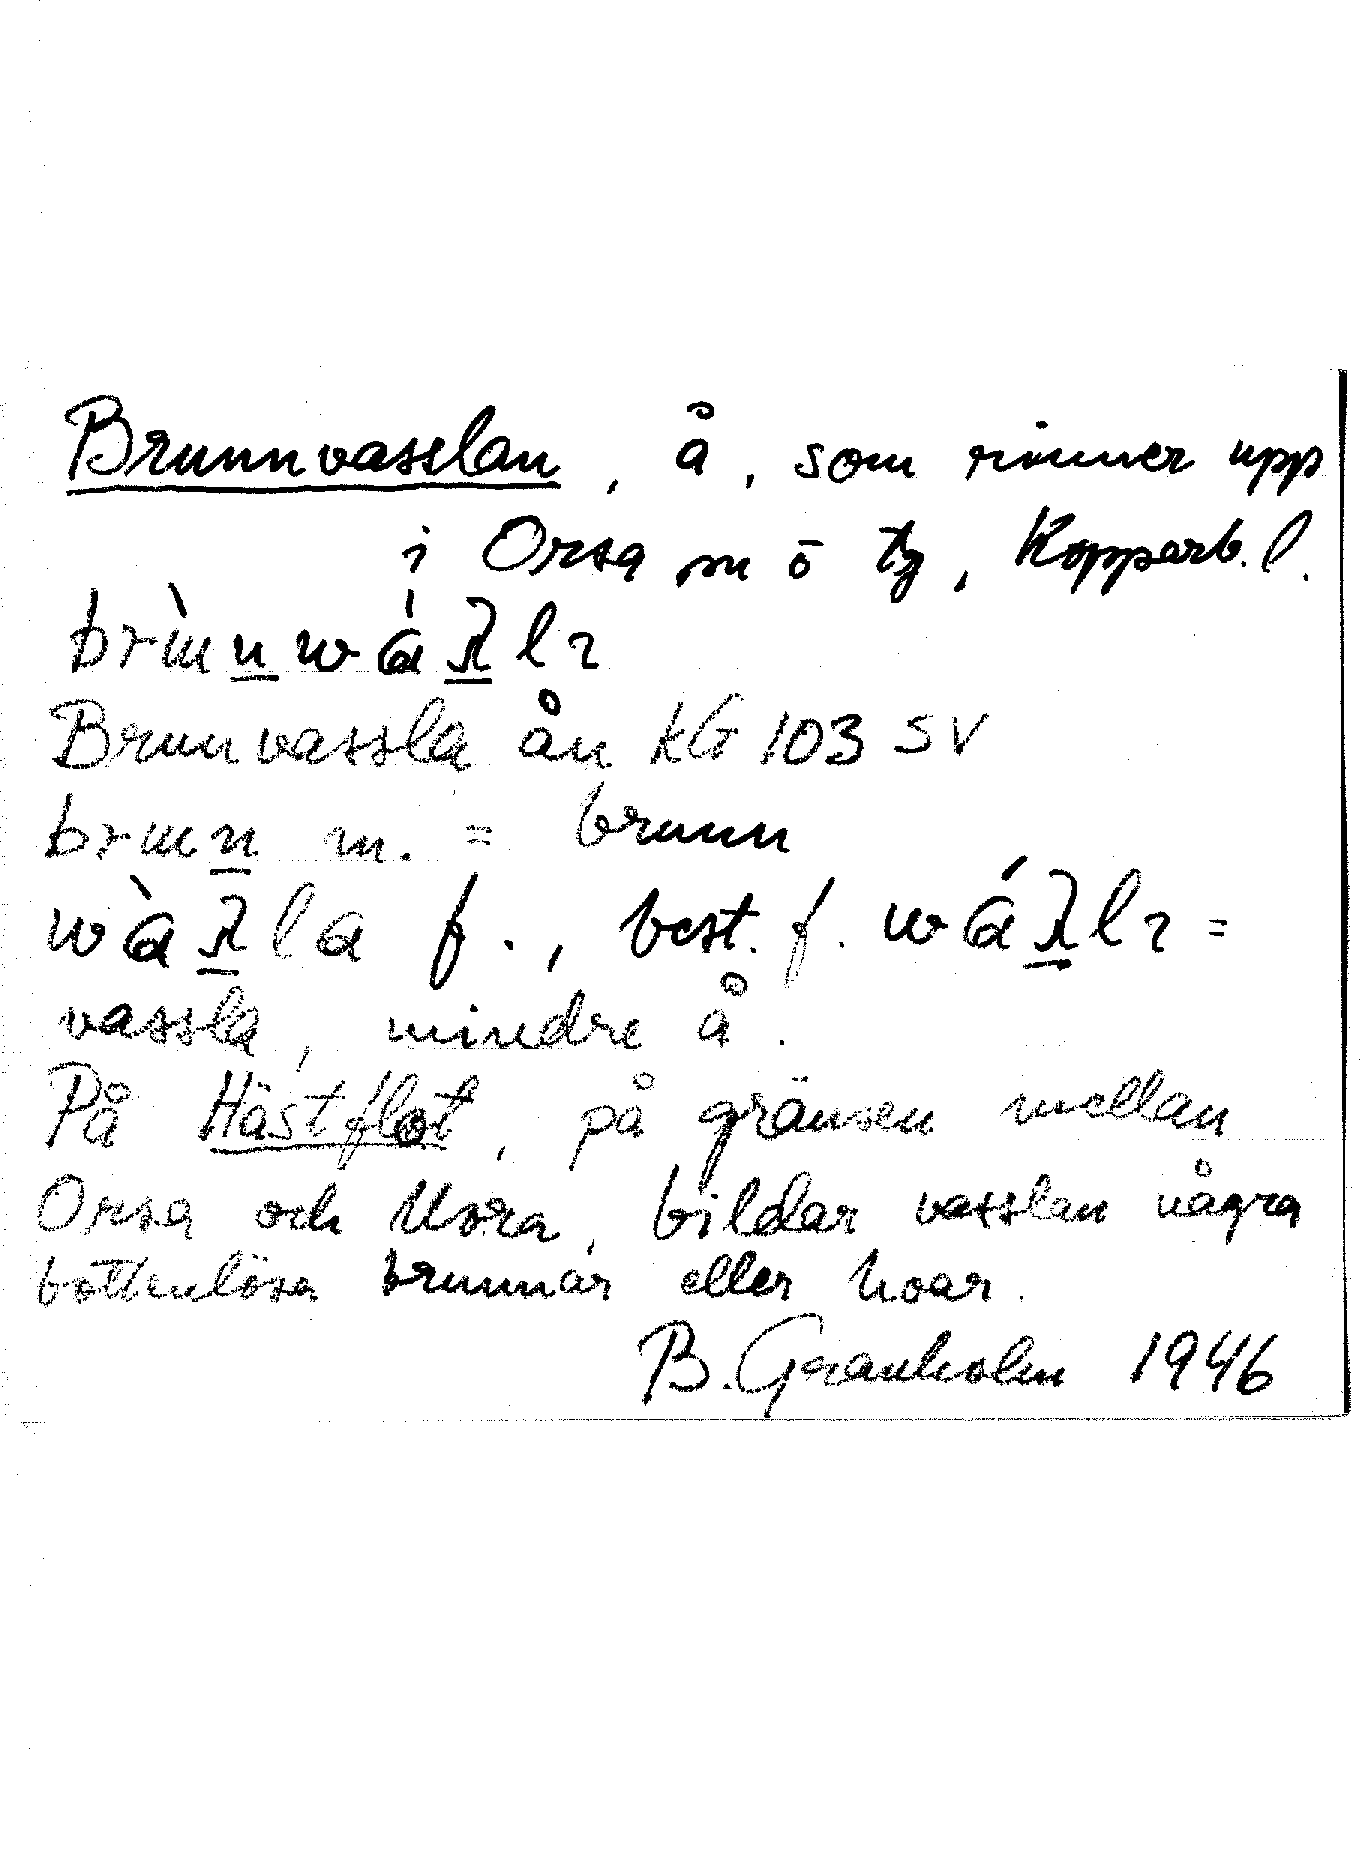 Brunnvasslan, å, som rinner upp
i Orsa sn ö tg, Kopparb. l.
Brunvassla ån KG 103 SV
m. = brunn
f., best. f. =
vassla, mindre å.
På Hästflot, på gränsen mellan
Orsa och Mora, bildar vasslan några
bottenlösa brunnar eller hoar.
B. Granholm 1946